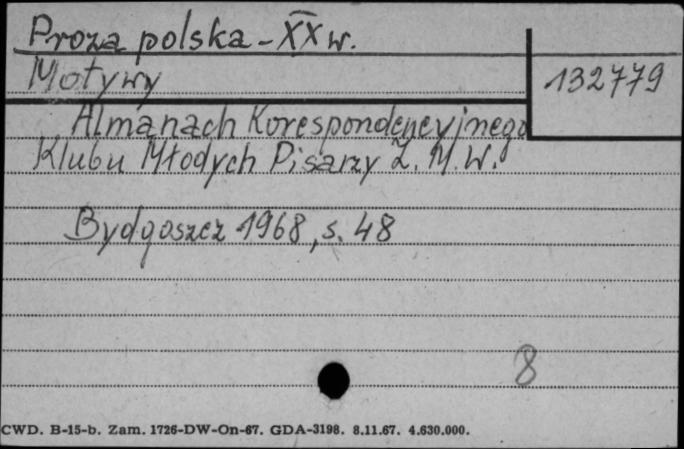 Proza polska - XX w.
Motywy
132779
Almanach Korespondencyjnego
Klubu Młodych Pisarzy Z. M. W.
Bydgoszcz 1968, s. 48
8
CWD. B-15-b. Zam. 1726-DW-On-67. GDA-3198. 8.11.67. 4.630.000.